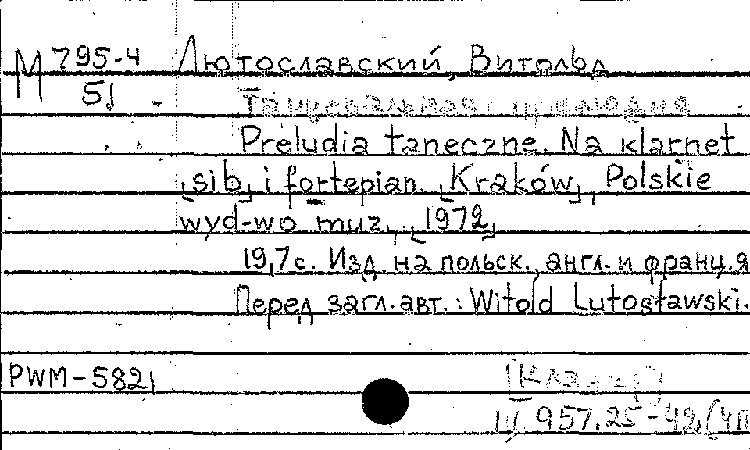 М 795-4 Лютославский, Витольд
51
Танцевальная прелюдия
Preludia taneczne. Na klarnet
[sib] i fortepian. [Kraków], Polskie
wyd-wo muz., [1972]
19,7 с. Изд. на польск., англ. и франц. я
Перед загл. авт.: Witold Lutosławski.
PWM-5821
957.25-42,